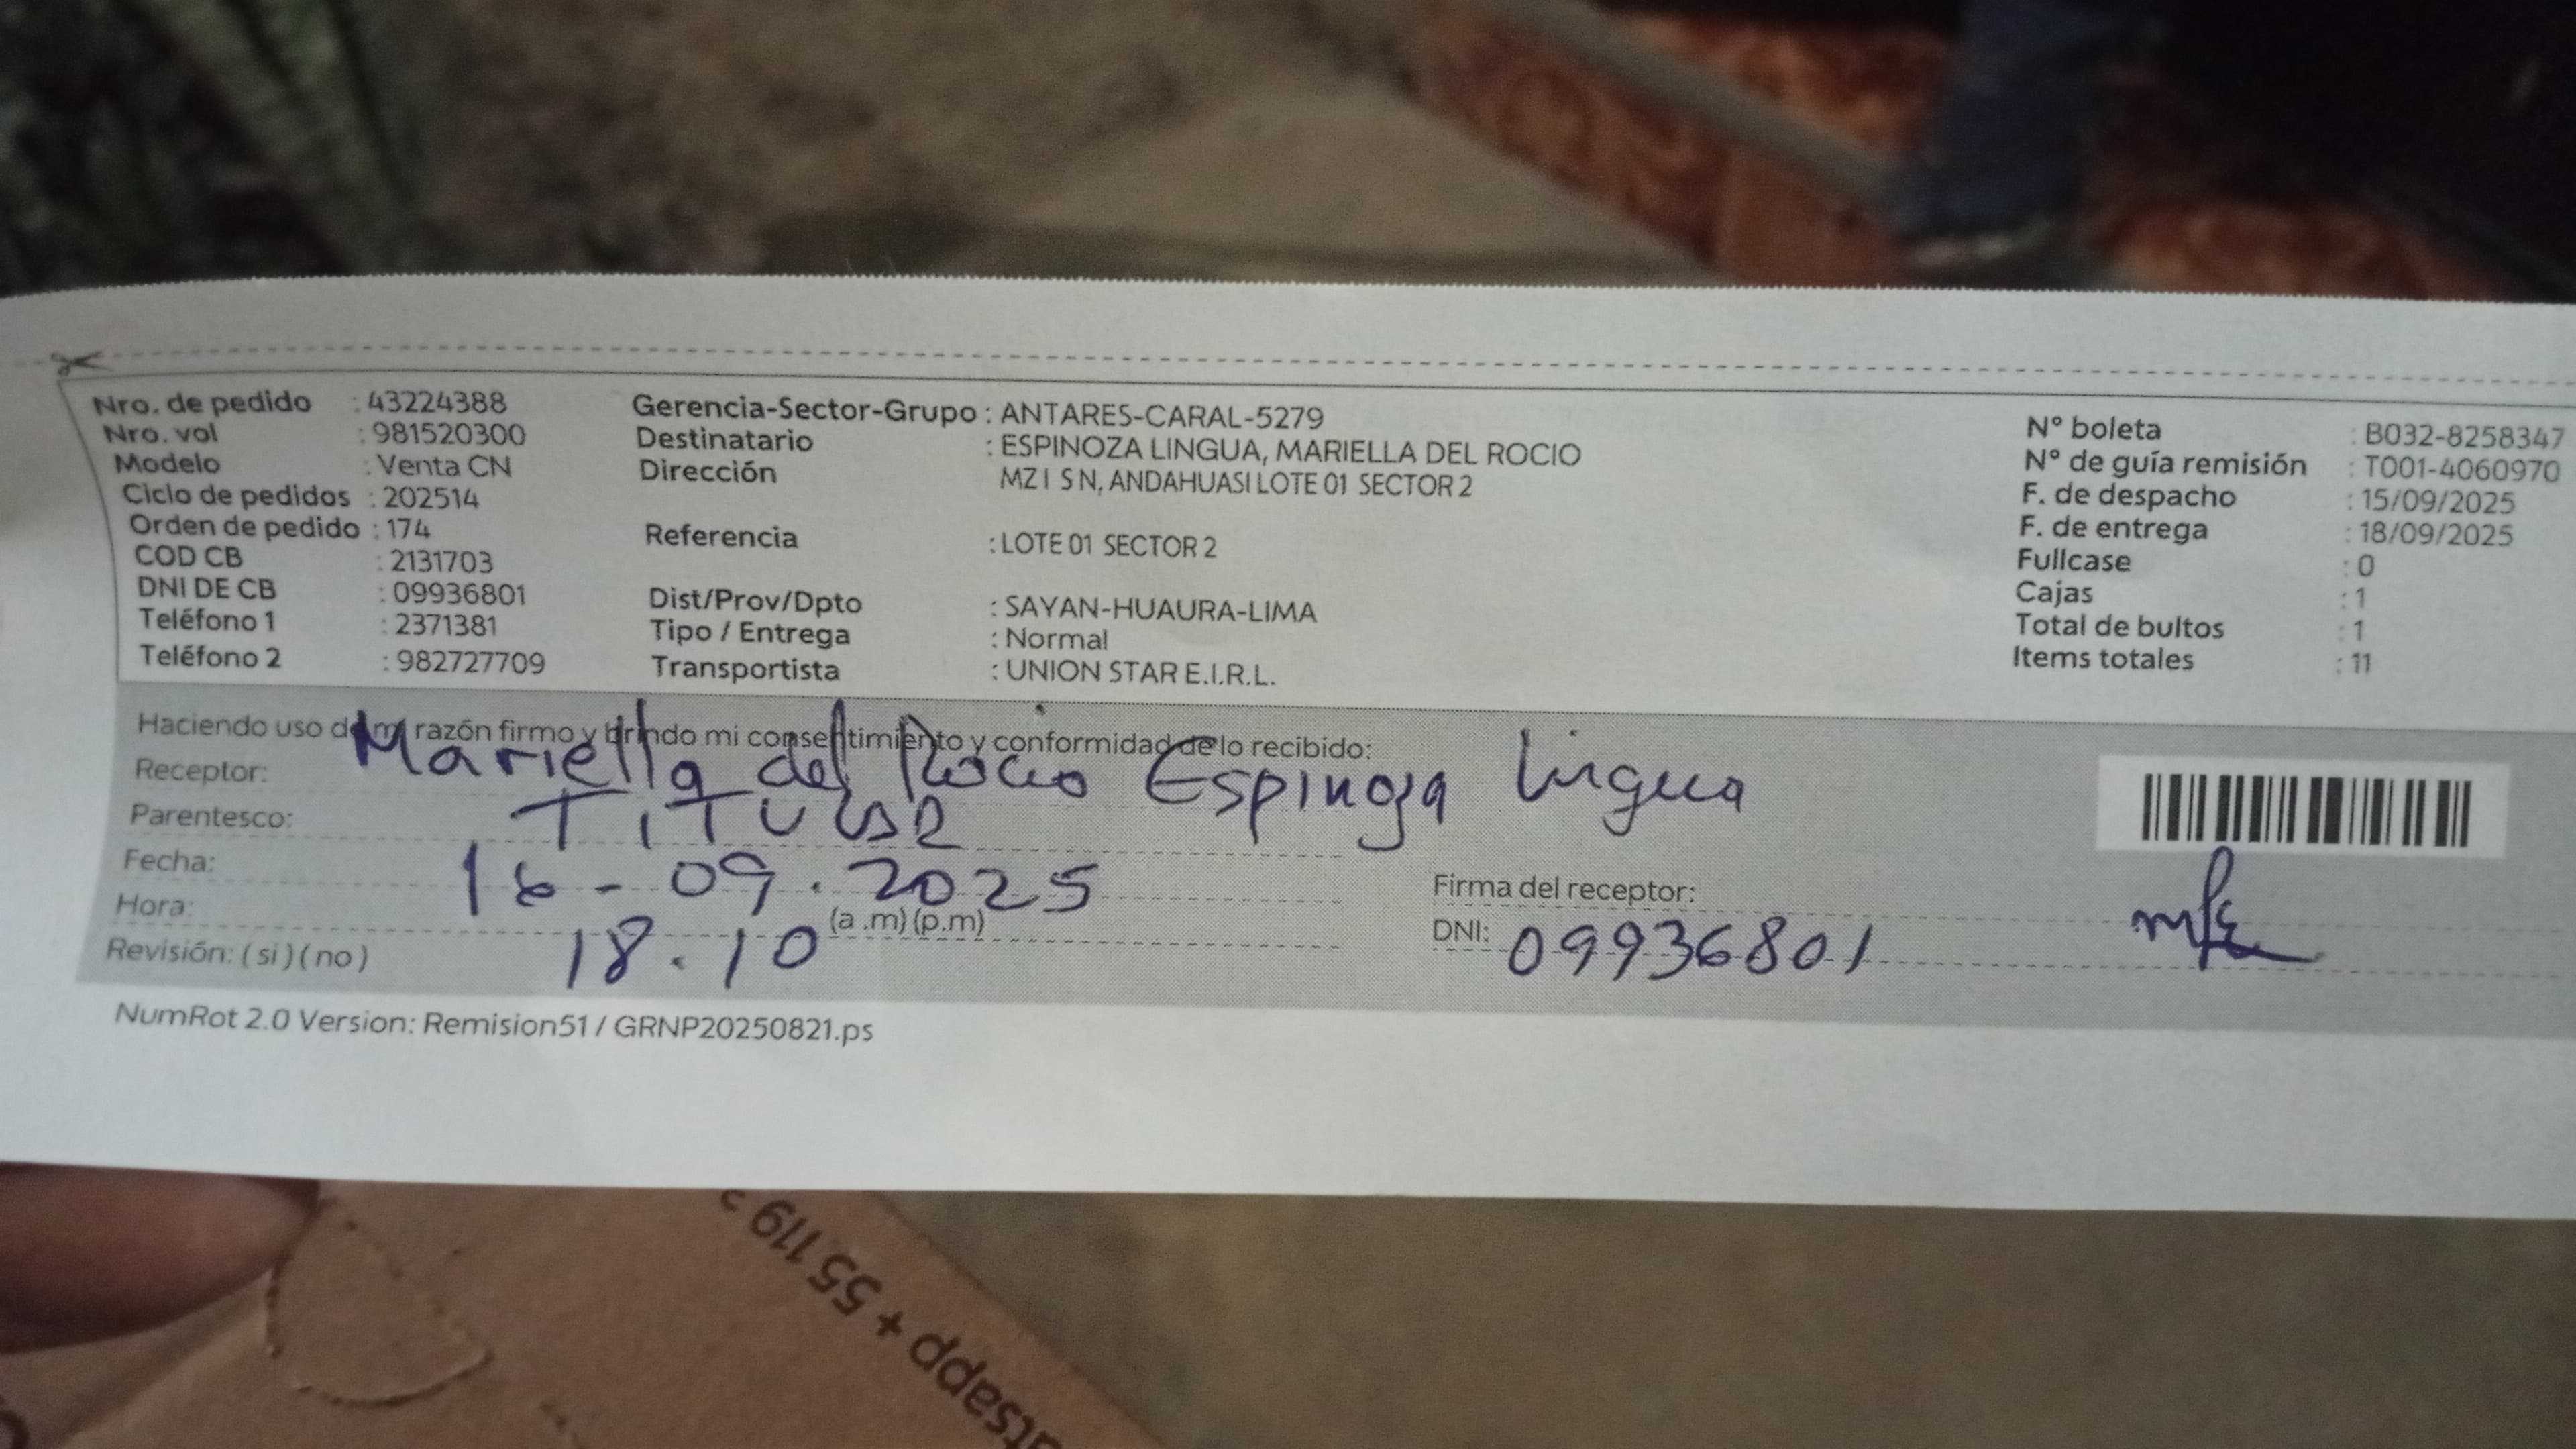 Nro. de pedido : 43224388
Nro. vol : 981520300
Modelo : Venta CN
Ciclo de pedidos : 202514
Orden de pedido : 174
COD CB : 2131703
DNI DE CB : 09936801
Teléfono 1 : 2371381
Teléfono 2 : 982727709
Gerencia-Sector-Grupo : ANTARES-CARAL-5279
Destinatario : ESPINOZA LINGUA, MARIELLA DEL ROCIO
Dirección MZ I S N, ANDAHUASI LOTE 01 SECTOR 2
Referencia : LOTE 01 SECTOR 2
Dist/Prov/Dpto : SAYAN-HUAURA-LIMA
Tipo / Entrega : Normal
Transportista : UNION STAR E.I.R.L.
N° boleta : B032-8258347
N° de guía remisión : T001-4060970
F. de despacho : 15/09/2025
F. de entrega : 18/09/2025
Fullcase : 0
Cajas : 1
Total de bultos : 1
Items totales : 11
Haciendo uso de mi razón firmo y brindo mi consentimiento y conformidad de lo recibido:
Receptor: Mariella del Rocio Espinoza Lingua
Parentesco: TITULAR
Fecha: 16-09.2025
Hora: 18.10 (a .m) (p.m)
Revisión: ( si ) ( no )
Firma del receptor:
DNI: 09936801
NumRot 2.0 Version: Remision51 / GRNP20250821.ps
atsapp + 55 119